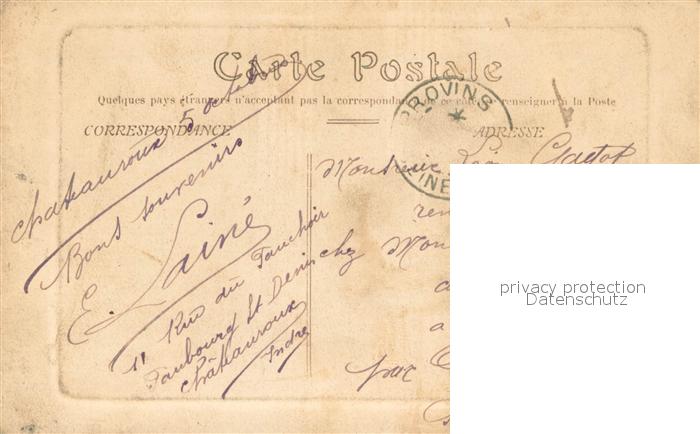 Carte Postale
Quelques pays étrangers n'acceptent pas la correspondance de ce côté se renseigner à la Poste
CORRESPONDANCE
ADRESSE
PROVINS
Chateauroux 5 octobre
Bons souvenirs
E. Lainé
11 Rue du
Faubourg St Denis
Châteauroux
Indre
Monsieur
chez Mon
par
privacy protection
Datenschutz